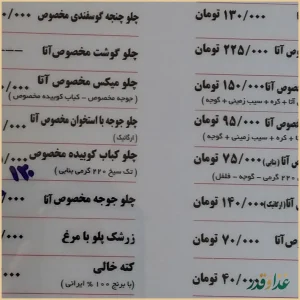 چلو چنجه گوسفندی مخصوص
چلو گوشت مخصوص آنا
چلو میکس مخصوص آنا
( جوجه مخصوص - کباب کوبیده مخصوص )
چلو جوجه با استخوان مخصوص آنا
( ارگانیک )
چلو کباب کوبیده مخصوص
( تک سیخ ۲۲۰ گرمی بنابی )
۱۲۰
چلو جوجه مخصوص آنا
زرشک پلو با مرغ
کته خالی
( با برنج ۱۰۰ % ایرانی )
۱۳۰/۰۰۰ تومان
آنا ۲۲۵/۰۰۰ تومان
آنا ۱۵۰/۰۰۰ تومان
آنا + کره + سیب زمینی + گوجه )
آنا ۹۵/۰۰۰ تومان
+ کره + سیب زمینی + گوجه )
(بنابی) ۷۵/۰۰۰ تومان
۲۲۰ گرمی - گوجه - فلفل )
آنا(ارگانیک) ۱۴۰/۰۰۰ تومان
آنا ۷۰/۰۰۰ تومان
۴۰/۰۰۰ تومان
عدل و قدر